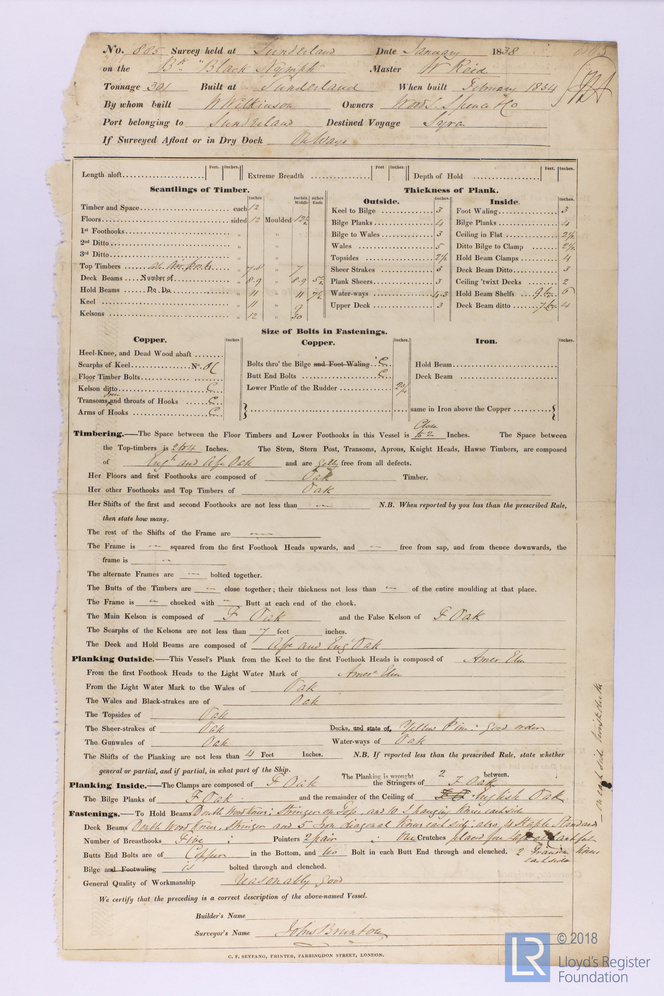 No. 885 Survey held at Sunderland Date January 1838
on the Bk "Black Nymph" Master W Reid
Tonnage 301 Built at Sunderland When built February 1834
By whom built W Wilkinson Owners Wood, Spence & Co
Port belonging to Sunderland Destined Voyage Syra
If Surveyed Afloat or in Dry Dock On Ways
Length aloft Feet. Inches. Extreme Breadth Feet Inches. Depth of Hold Feet. Inches.
Scantlings of Timber. Thickness of Plank.
Outside. Inside.
Timber and Space each 12 Keel to Bilge 3 Foot Waling 3
Floors sided 12 Moulded Bilge Planks 4 Bilge Planks 4
1st Foothooks Bilge to Wales 3 Ceiling in Flat 2½
2nd Ditto Wales 5 Ditto Bilge to Clamp 2½
3rd Ditto Topsides 2½ Hold Beam Clamps 4
Top Timbers Sheer Strakes 3 Deck Beam Ditto 3
Deck Beams Number of 8.9 8.9 Plank Sheers 3 Ceiling 'twixt Decks 2
Hold Beams Do. Do. 11 11 Water-ways 4.3 Hold Beam Shelfs 6
Keel 11 Upper Deck 3 Deck Beam ditto 4
Kelsons 12
Size of Bolts in Fastenings.
Copper. Copper. Iron.
Heel-Knee, and Dead Wood abaft
Scarphs of Keel No. Bolts thro' the Bilge and Foot Waling C Hold Beam
Floor Timber Bolts Butt End Bolts C Deck Beam
Kelson ditto C Lower Pintle of the Rudder
Transoms and throats of Hooks C
Arms of Hooks C same in Iron above the Copper
Timbering.—The Space between the Floor Timbers and Lower Foothooks in this Vessel is Close to 2 Inches. The Space between
the Top-timbers is 2 to 4 Inches. The Stem, Stern Post, Transoms, Aprons, Knight Heads, Hawse Timbers, are composed
of Engh and Afn Oak and are free from all defects.
Her Floors and first Foothooks are composed of Oak Timber.
Her other Foothooks and Top Timbers of Oak
Her Shifts of the first and second Foothooks are not less than — N.B. When reported by you less than the prescribed Rule,
then state how many.
The rest of the Shifts of the Frame are —
The Frame is — squared from the first Foothook Heads upwards, and — free from sap, and from thence downwards, the
frame is —
The alternate Frames are — bolted together.
The Butts of the Timbers are — close together; their thickness not less than — of the entire moulding at that place.
The Frame is — chocked with — Butt at each end of the chock.
The Main Kelson is composed of F Oak and the False Kelson of F Oak
The Scarphs of the Kelsons are not less than 7 feet inches.
The Deck and Hold Beams are composed of Afn and Eng Oak
Planking Outside.—This Vessel's Plank from the Keel to the first Foothook Heads is composed of Amer Elm
From the first Foothook Heads to the Light Water Mark of Amern Elm
From the Light Water Mark to the Wales of Oak
The Wales and Black-strakes are of Oak
The Topsides of Oak
The Sheer-strakes of Oak Decks, and state of, Yellow Pine: good order
The Gunwales of Oak Water-ways of Oak
The Shifts of the Planking are not less than 4 Feet Inches. N.B. If reported less than the prescribed Rule, state whether
general or partial, and if partial, in what part of the Ship.
The Planking is wrought 2 between.
Planking Inside.—The Clamps are composed of F Oak the Stringers of F Oak
The Bilge Planks of F Oak and the remainder of the Ceiling of English Oak
Fastenings.—To Hold Beams Double Wood Knees; Stringers on tops and 10 hanging knees each side
Deck Beams Double Wood Knees, Stringer and 5 Iron Diagonal Knees each side; also to Staple Standard
Number of Breasthooks Five Pointers 2 pair One Crutches
Butts End Bolts are of Copper in the Bottom, and no Bolt in each Butt End through and clenched.
Bilge and Footwaling is bolted through and clenched.
General Quality of Workmanship reasonably good
We certify that the preceding is a correct description of the above-named Vessel.
Builder's Name
Surveyor's Name John Brunton
C. F. SEYFANG, PRINTER, FARRINGDON STREET, LONDON.
LR © 2018
Lloyd's Register
Foundation